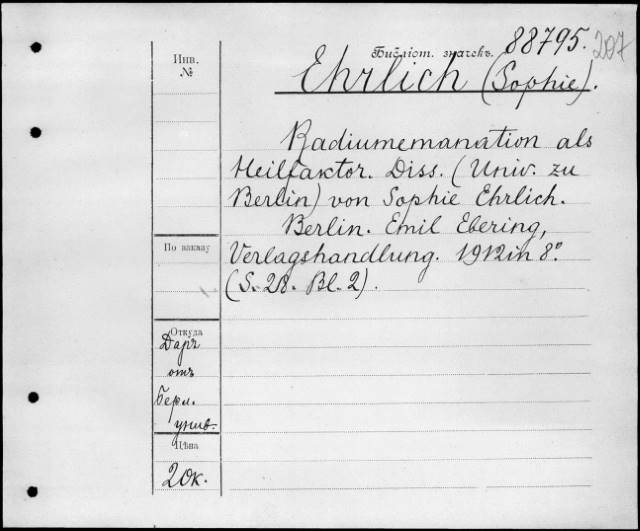 Инв.
№
Библіот. значекъ. 88795.
207
Ehrlich (Sophie).
Radiumemanation als
Heilfaktor. Diss. (Univ. zu
Berlin) von Sophie Ehrlich.
Berlin. Emil Ebering,
Verlagshandlung. 1912 in 8°.
(S. 28. Bl. 2).
По заказу
Откуда
Даръ
отъ
Берл.
унив.
Цѣна
20к.